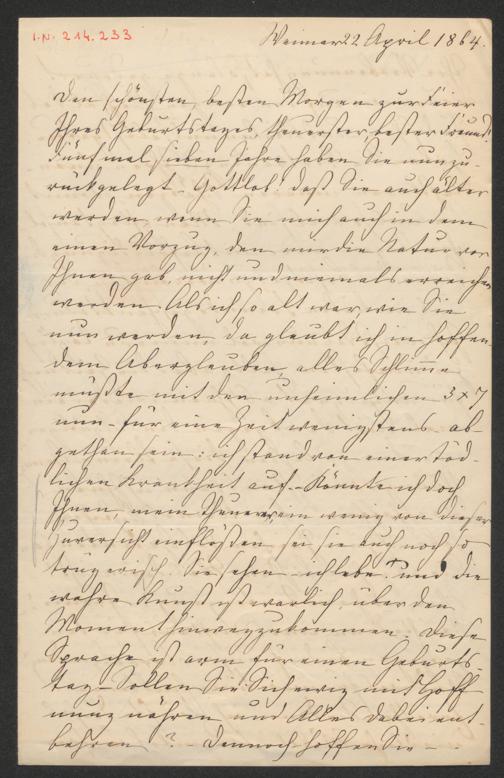 I.N. 214.233
Weimar 22 April 1864.
Den schönsten, besten Morgen zur Feier
Ihres Geburtstages, theuerster bester Freund!
Fünfmal sieben Jahre haben Sie nun zu-
rückgelegt – Gottlob! daß Sie auch älter
werden wenn Sie mich auch in dem
einen Vorzug, den mir die Natur vor
Ihnen gab, nicht und niemals erreichen
werden. Als ich so alt war, wie Sie
nun werden da glaubt ich in hoffen-
dem Aberglauben, alles Schlimme
müßte mit den unheimlichen 3 x 7
nun – für eine Zeit wenigstens ab-
gethan sein: ich stand von einer töd-
lichen Krankheit auf. – Könnte ich doch
Ihnen, mein Theurer, ein wenig von dieser
Zuversicht einflößen sei sie auch noch so
trügerisch. Sie sehen – ich lebe und die
wahre Kunst ist warlich, über den
Moment hinwegzukommen. Diese
Sprache ist arm für einen Geburts-
tag – Sollen Sie Sich ewig mit Hoff-
nung nähren und Alles dabei ent-
behren? – Dennoch hoffen Sie –